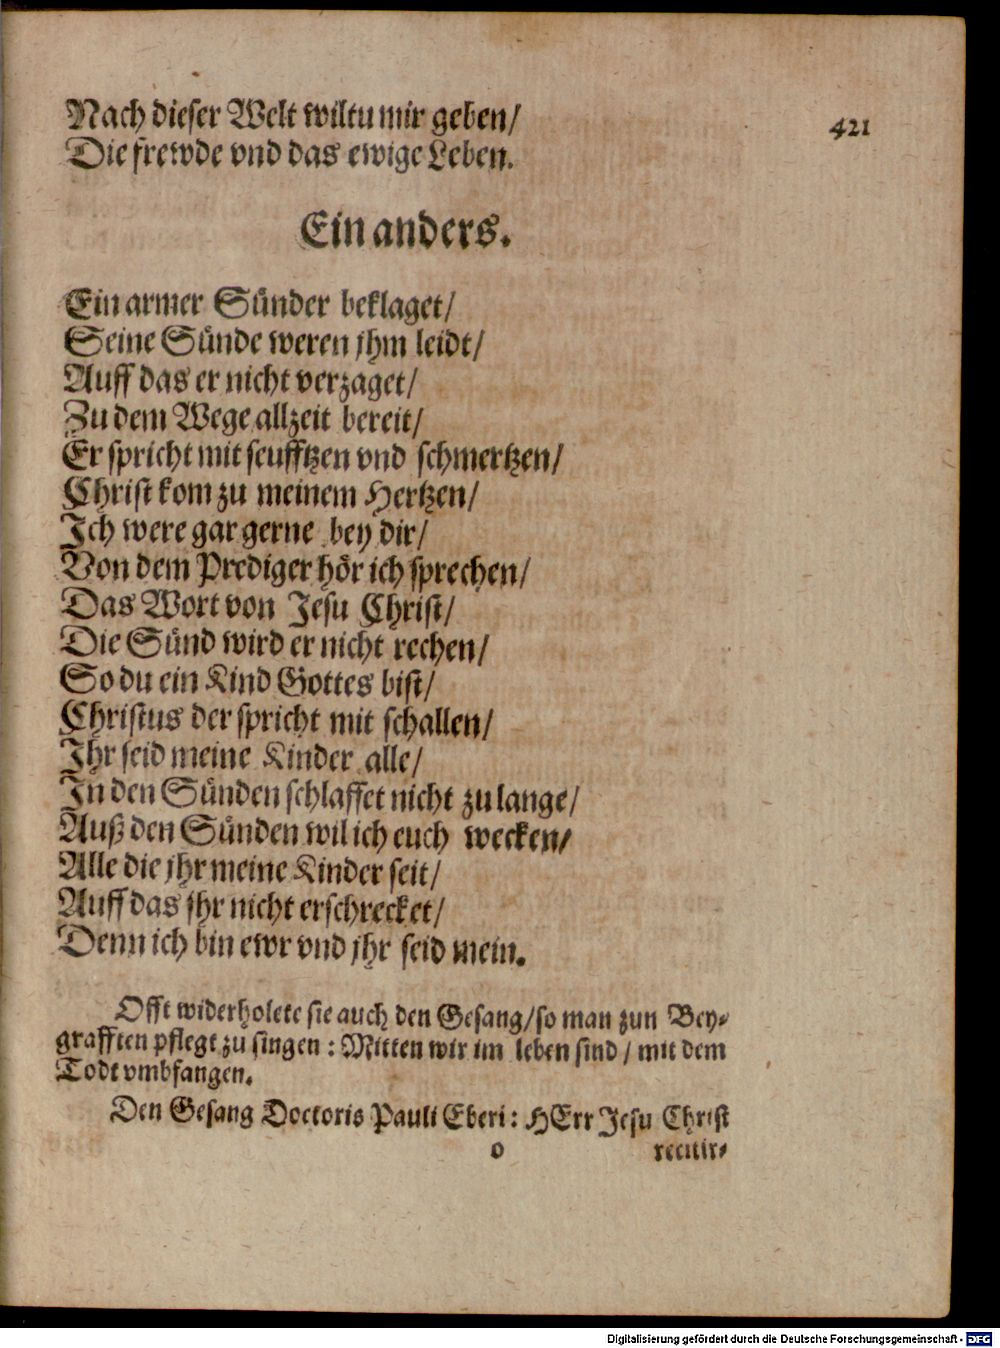 Nach dieser Welt wiltu mir geben/
421
Die frewde vnd das ewige Leben.
Ein anders.
Ein armer Sünder beklaget/
Seine Sünde weren jhm leidt/
Auff das er nicht verzaget/
Zu dem Wege allzeit bereit/
Er spricht mit seufftzen vnd schmertzen/
Christ kom zu meinem Hertzen/
Ich were gar gerne bey dir/
Von dem Prediger hör ich sprechen/
Das Wort von Jesu Christ/
Die Sünd wird er nicht rechen/
So du ein Kind Gottes bist/
Christus der spricht mit schallen/
Ihr seid meine Kinder alle/
In den Sünden schlaffet nicht zu lange/
Auß den Sünden wil ich euch wecken/
Alle die jhr meine Kinder seit/
Auff das jhr nicht erschrecket/
Denn ich bin ewr vnd jhr seid mein.
Offt widerholete sie auch den Gesang/so man zun Bey-
grafften pflegt zu singen: Mitten wir im leben sind/ mit dem
Todt vmbfangen.
Den Gesang Doctoris Pauli Eberi: HErr Jesu Christ
o recitir-
Digitalisierung gefördert durch die Deutsche Forschungsgemeinschaft - DFG